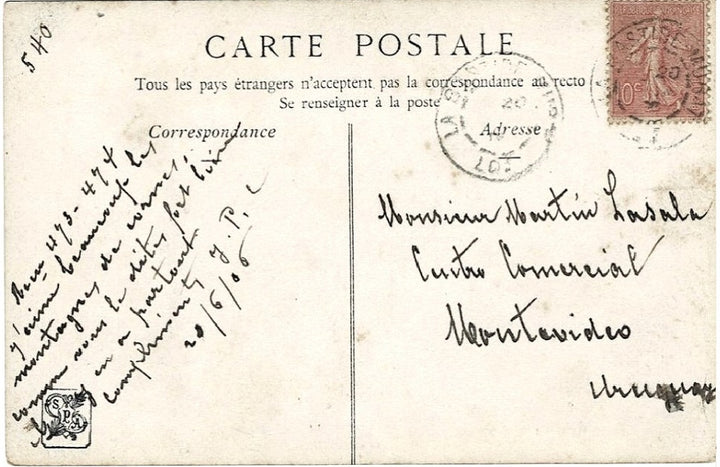 540
CARTE POSTALE
Tous les pays étrangers n'acceptent pas la correspondance au recto
Se renseigner à la poste
Correspondance
Adresse
473-474
J'aime beaucoup les
montagnes de
comme vous le dites fort bien
il y en a partout
compliments J. P. L
20/6/06
SPA
10c
LA BASTIDE
20
LOT
Monsieur Martín Lasala
Centro Comercial
Montevideo
Uruguay